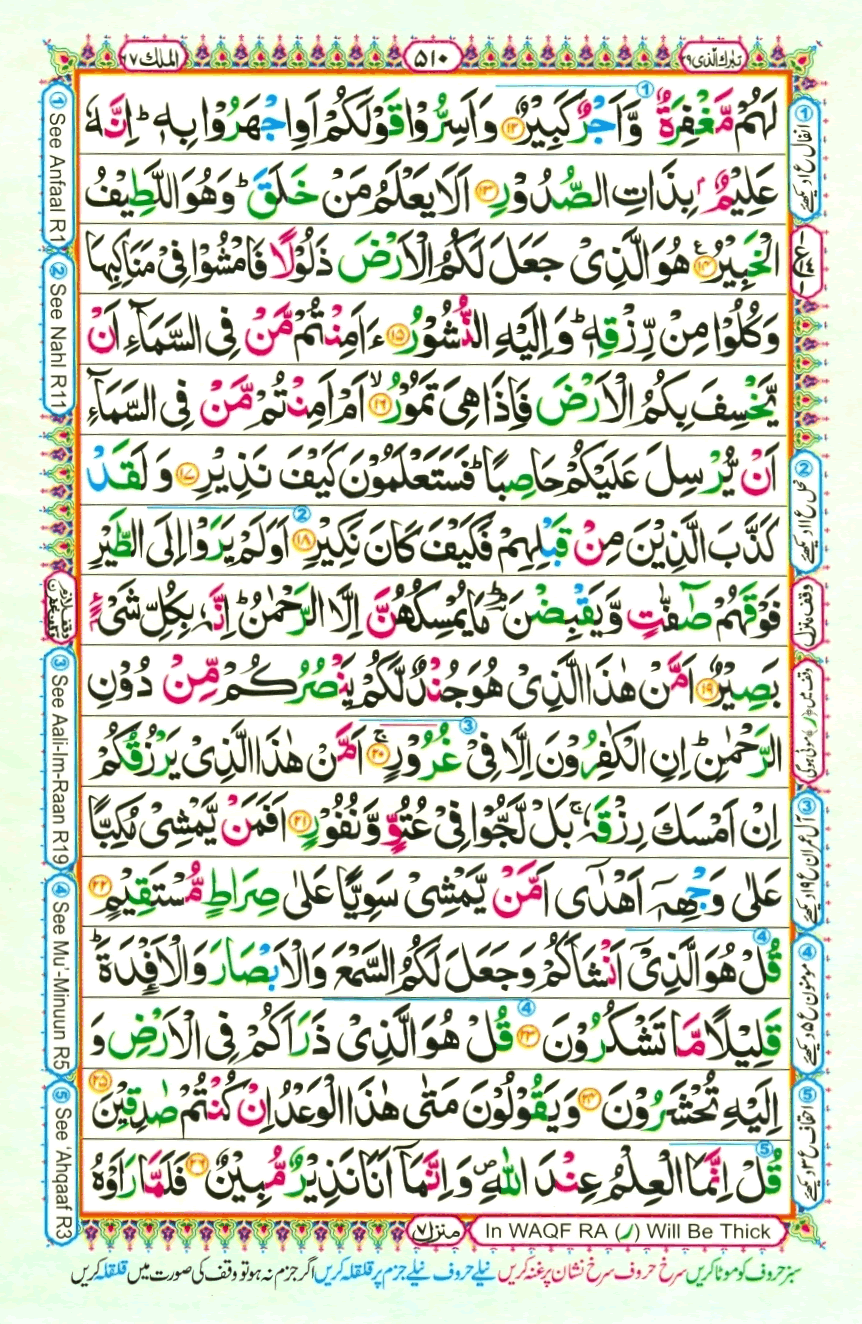 تبٰرک الذی ۲۹
۵۱۰
الملک ۶۷
لَهُمْ مَّغْفِرَةٌ وَّاَجْرٌ كَبِیْرٌ ﴿۱۲﴾ وَ اَسِرُّوْا قَوْلَكُمْ اَوِ اجْهَرُوْا بِهٖ ؕ اِنَّهٗ
عَلِیْمٌۢ بِذَاتِ الصُّدُوْرِ ﴿۱۳﴾ اَلَا یَعْلَمُ مَنْ خَلَقَ ؕ وَ هُوَ اللَّطِیْفُ
الْخَبِیْرُ ﴿۱۴﴾ هُوَ الَّذِیْ جَعَلَ لَكُمُ الْاَرْضَ ذَلُوْلًا فَامْشُوْا فِیْ مَنَاكِبِهَا
وَ كُلُوْا مِنْ رِّزْقِهٖ ؕ وَ اِلَیْهِ النُّشُوْرُ ﴿۱۵﴾ ءَاَمِنْتُمْ مَّنْ فِی السَّمَآءِ اَنْ
یَّخْسِفَ بِكُمُ الْاَرْضَ فَاِذَا هِیَ تَمُوْرُ ﴿۱۶﴾ اَمْ اَمِنْتُمْ مَّنْ فِی السَّمَآءِ
اَنْ یُّرْسِلَ عَلَیْكُمْ حَاصِبًا ؕ فَسَتَعْلَمُوْنَ كَیْفَ نَذِیْرِ ﴿۱۷﴾ وَ لَقَدْ
كَذَّبَ الَّذِیْنَ مِنْ قَبْلِهِمْ فَكَیْفَ كَانَ نَكِیْرِ ﴿۱۸﴾ اَوَلَمْ یَرَوْا اِلَی الطَّیْرِ
فَوْقَهُمْ صٰٓفّٰتٍ وَّ یَقْبِضْنَ ؕ مَا یُمْسِكُهُنَّ اِلَّا الرَّحْمٰنُ ؕ اِنَّهٗ بِكُلِّ شَیْءٍۭ
بَصِیْرٌ ﴿۱۹﴾ اَمَّنْ هٰذَا الَّذِیْ هُوَ جُنْدٌ لَّكُمْ یَنْصُرُكُمْ مِّنْ دُوْنِ
الرَّحْمٰنِ ؕ اِنِ الْكٰفِرُوْنَ اِلَّا فِیْ غُرُوْرٍ ﴿۲۰﴾ اَمَّنْ هٰذَا الَّذِیْ یَرْزُقُكُمْ
اِنْ اَمْسَكَ رِزْقَهٗ ۚ بَلْ لَّجُّوْا فِیْ عُتُوٍّ وَّ نُفُوْرٍ ﴿۲۱﴾ اَفَمَنْ یَّمْشِیْ مُكِبًّا
عَلٰی وَجْهِهٖۤ اَهْدٰۤی اَمَّنْ یَّمْشِیْ سَوِیًّا عَلٰی صِرَاطٍ مُّسْتَقِیْمٍ ﴿۲۲﴾
قُلْ هُوَ الَّذِیْۤ اَنْشَاَكُمْ وَ جَعَلَ لَكُمُ السَّمْعَ وَ الْاَبْصَارَ وَ الْاَفْـِٕدَةَ ؕ
قَلِیْلًا مَّا تَشْكُرُوْنَ ﴿۲۳﴾ قُلْ هُوَ الَّذِیْ ذَرَاَكُمْ فِی الْاَرْضِ وَ
اِلَیْهِ تُحْشَرُوْنَ ﴿۲۴﴾ وَ یَقُوْلُوْنَ مَتٰی هٰذَا الْوَعْدُ اِنْ كُنْتُمْ صٰدِقِیْنَ ﴿۲۵﴾
قُلْ اِنَّمَا الْعِلْمُ عِنْدَ اللّٰهِ ۪ وَ اِنَّمَاۤ اَنَا نَذِیْرٌ مُّبِیْنٌ ﴿۲۶﴾ فَلَمَّا رَاَوْهُ
① انفال ع ۱ دیکھئے
② نحل ع ۱۱ دیکھئے
وقف منزل
③ آل عمران ع ۱۹ دیکھئے
④ مومنون ع ۵ دیکھئے
⑤ احقاف ع ۳ دیکھئے
① See Anfaal R1
② See Nahl R11
③ See Aali-Im-Raan R19
④ See Mu'-Minuun R5
⑤ See 'Ahqaaf R3
منزل ۷
In WAQF RA (ر) Will Be Thick
سبز حروف کو موٹا کریں سرخ حروف سرخ نشان پر غنہ کریں نیلے حروف نیلے جزم پر قلقلہ کریں اگر جزم نہ ہو تو وقف کی صورت میں قلقلہ کریں